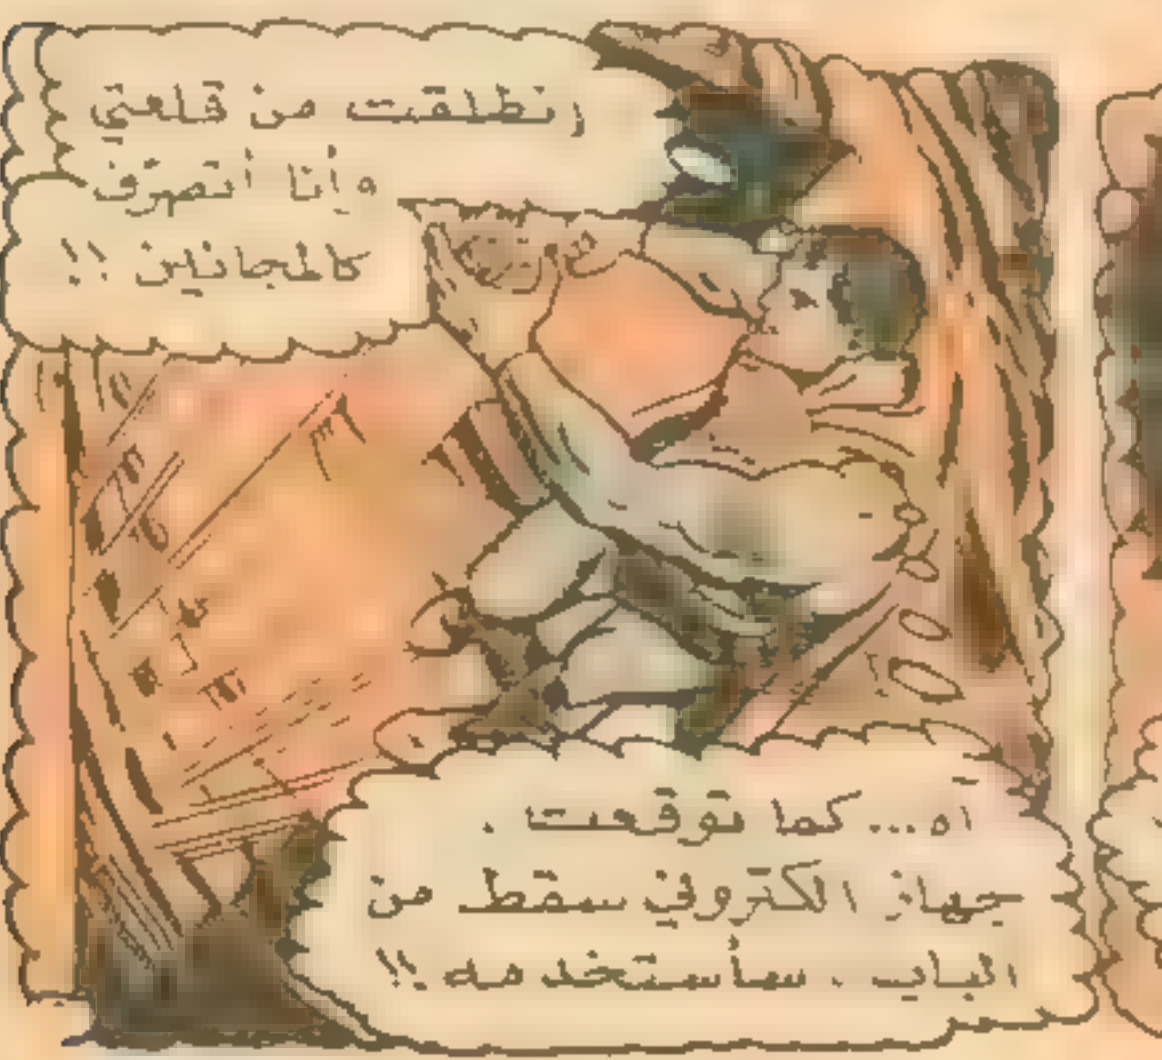 انطلقت من قلعتي
وأنا أتصرف
كالمجانين !!
آه... كما توقعت .
جهاز الكتروني سقط من
الباب . سأستخدمه !!